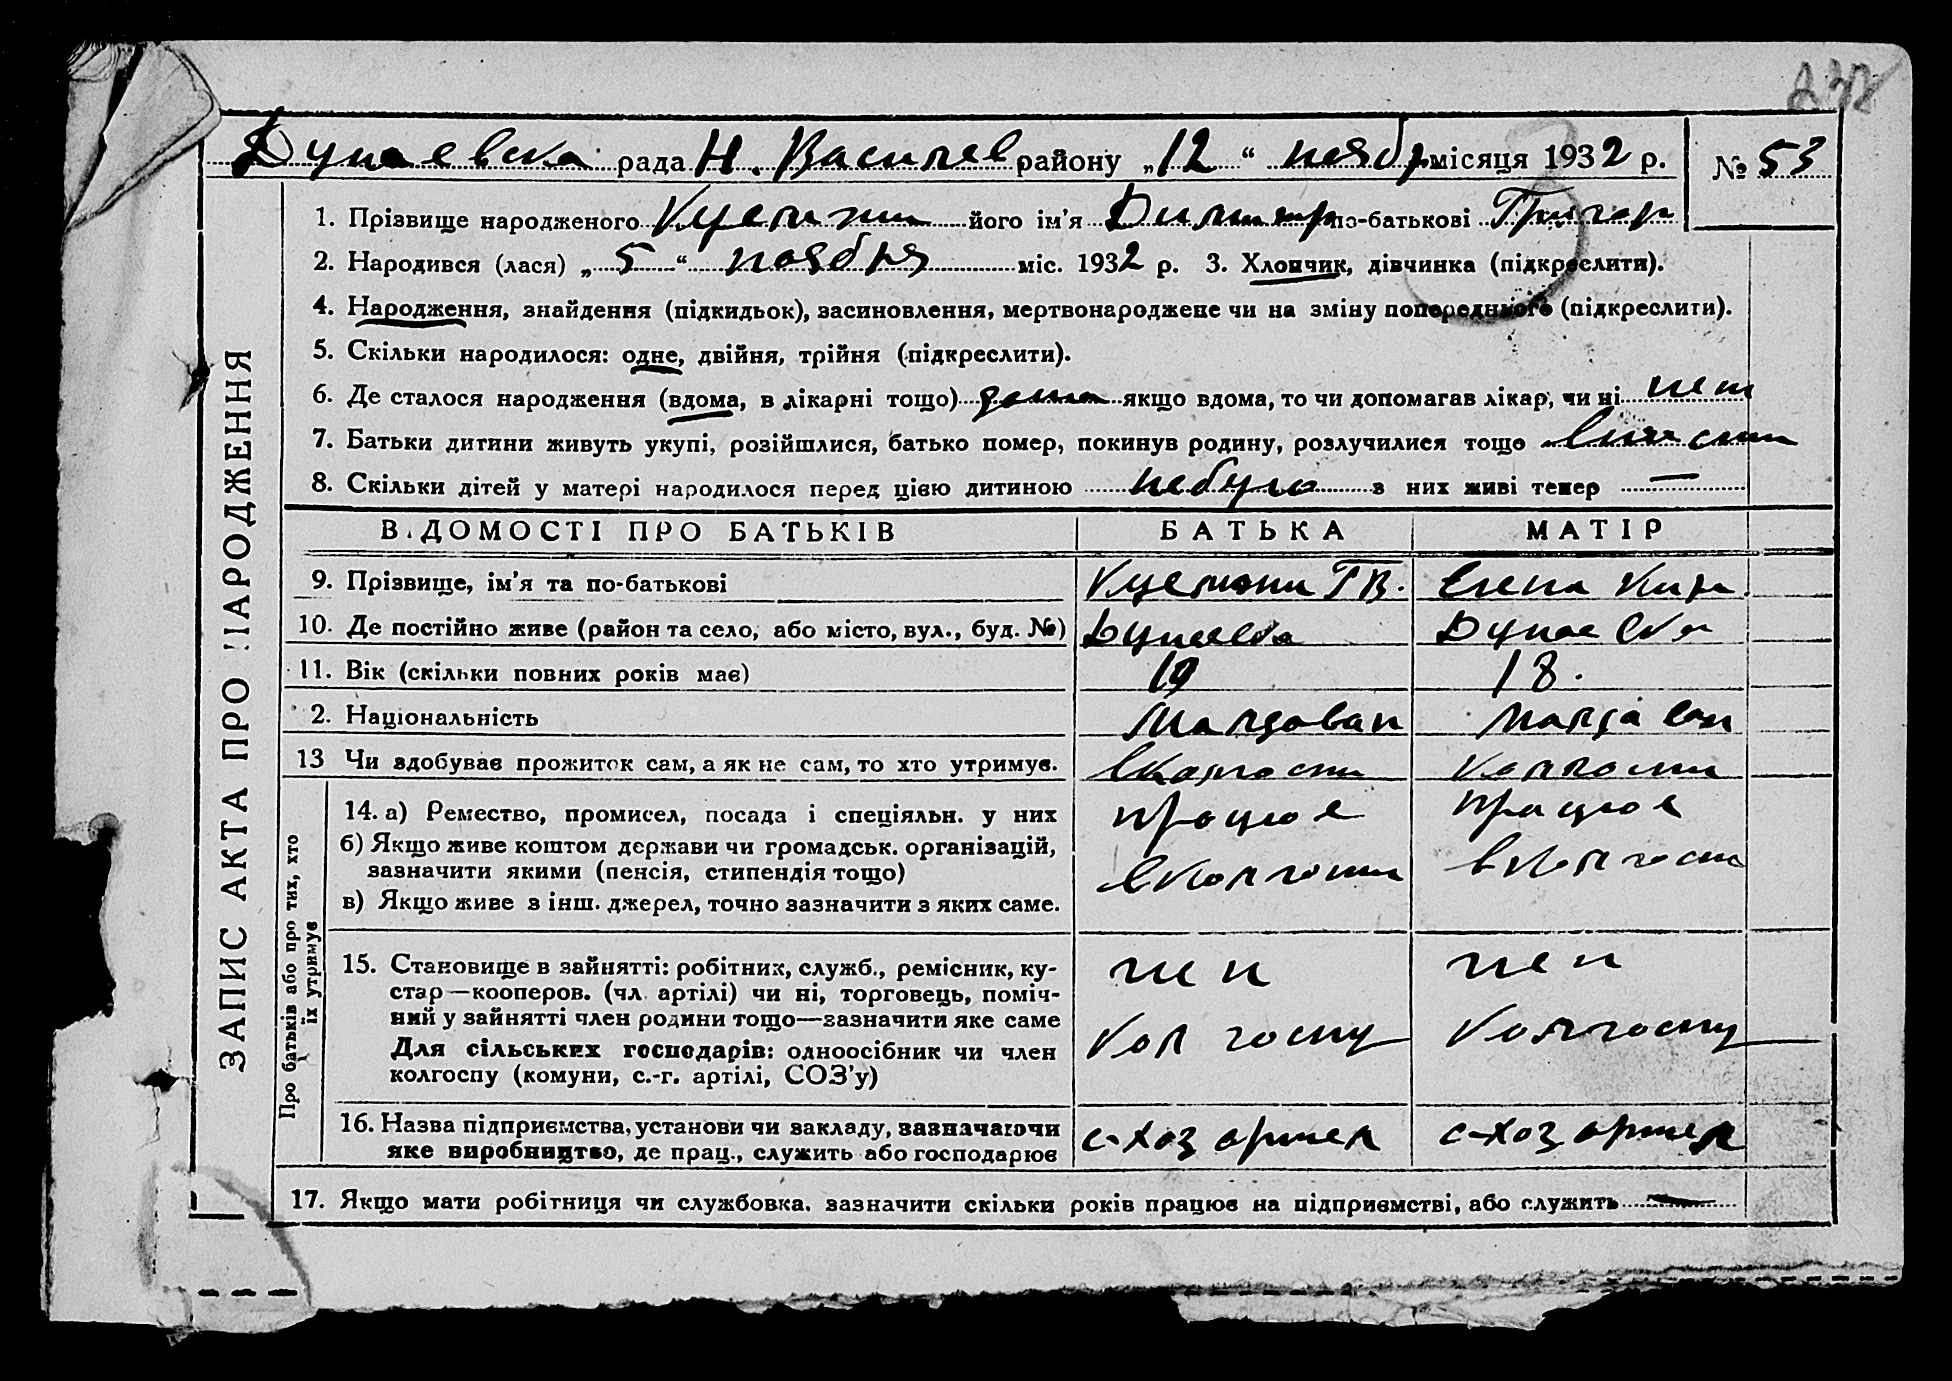 238
Дунаевска рада Н. Василев району „12“ ноябр місяця 1932 р. № 53
1. Прізвище народженого його ім'я Димитр по-батькові Григор
2. Народився (лася) „5“ ноября міс. 1932 р. 3. Хлопчик, дівчинка (підкреслити).
4. Народження, знайдення (підкидьок), засиновлення, мертвонароджене чи на зміну попереднього (підкреслити).
5. Скільки народилося: одне, двійня, трійня (підкреслити).
6. Де сталося народження (вдома, в лікарні тощо) дома якщо вдома, то чи допомагав лікар, чи ні нет
7. Батьки дитини живуть укупі, розійшлися, батько помер, покинув родину, розлучилися тощо
8. Скільки дітей у матері народилося перед цією дитиною небуло з них живі тепер —
ВІДОМОСТІ ПРО БАТЬКІВ БАТЬКА МАТІР
9. Прізвище, ім'я та по-батькові Г В. Елена Кир
10. Де постійно живе (район та село, або місто, вул., буд. №) Дунаевка Дунаевка
11. Вік (скільки повних років має) 19 18.
2. Національність Молдован Молдован
13 Чи здобуває прожиток сам, а як не сам, то хто утримує. вколгоспи колгоспи
14. а) Ремество, промисел, посада і спеціяльн. у них працює працює
б) Якщо живе коштом держави чи громадськ. організацій,
зазначити якими (пенсія, стипендія тощо) вколгоспи вколгосп
в) Якщо живе з інш. джерел, точно зазначити з яких саме.
15. Становище в зайнятті: робітник, служб., ремісник, ку-
член член
стар—кооперов. (чл. артілі) чи ні, торговець, поміч-
ний у зайнятті член родини тощо—зазначити яке саме
колгоспу колгоспу
Для сільських господарів: одноосібник чи член
колгоспу (комуни, с.-г. артілі, СОЗ'у)
16. Назва підприємства, установи чи закладу, зазначаючи
с-хоз артел с-хоз артел
яке виробництво, де прац., служить або господарює
17. Якщо мати робітниця чи службовка, зазначити скільки років працює на підприємстві, або служить —
ЗАПИС АКТА ПРО НАРОДЖЕННЯ
Про батьків або про тих, хто
їх утримує